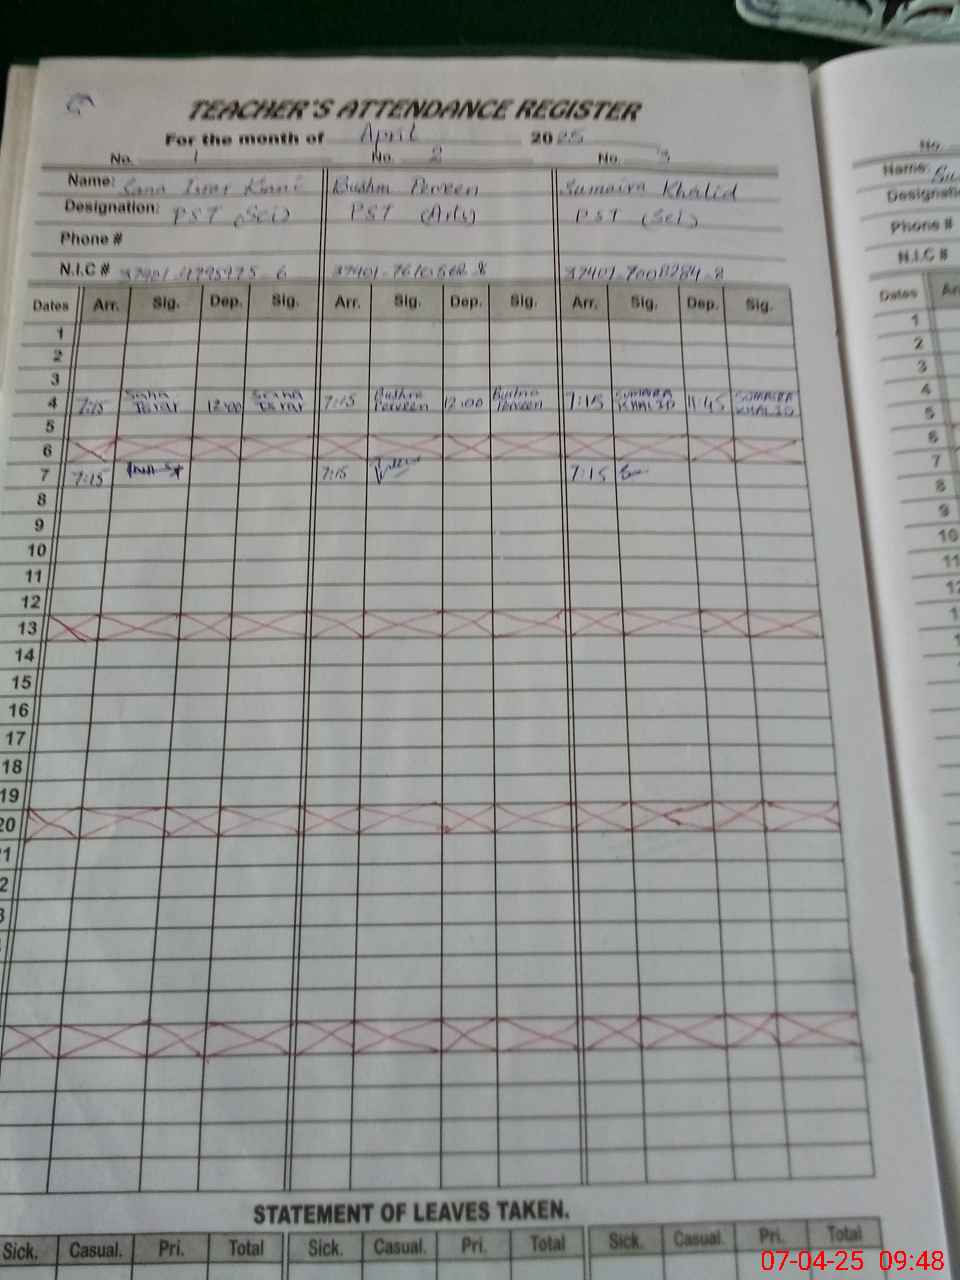 TEACHER'S ATTENDANCE REGISTER
For the month of April 2025
No. 1 No. 2 No. 3
Name: Bushra Perveen Sumaira Khalid
Designation: PST (Sci) PST (Arts) PST (Sci)
Phone #
N.I.C #
Dates Arr. Sig. Dep. Sig. Arr. Sig. Dep. Sig. Arr. Sig. Dep. Sig.
1
2
3
4 7:15 12:00 7:15 Bushra Perveen 12:00 Bushra Perveen 7:15 SUMAIRA KHALID 11:45 SUMAIRA KHALID
5
6
7 7:15 7:15 7:15
8
9
10
11
12
13
14
15
16
17
18
19
20
STATEMENT OF LEAVES TAKEN.
Sick. Casual. Pri. Total Sick. Casual. Pri. Total Sick. Casual. Pri. Total
No.
Name:
Designation
Phone #
N.I.C #
Dates
1
2
3
4
5
6
7
8
9
10
07-04-25 09:48